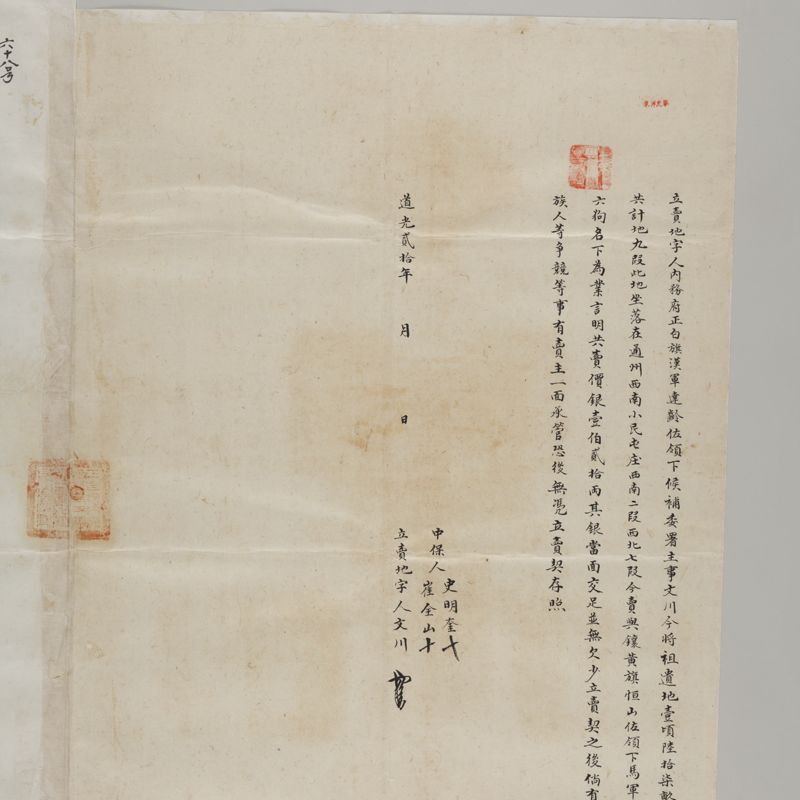 立賣地字人內務府正白旗漢軍達齡佐領下候補委署主事文川今將祖遺地壹頃陸拾柒畝
共計地九段此地坐落在通州西南小民屯庄西南二段西北七段今賣與鑲黃旗恒山佐領下馬軍
六狗名下為業言明共賣價銀壹伯貳拾兩其銀當面交足並無欠少立賣契之後倘有
族人等爭競等事有賣主一面承管恐後無凴立賣契存照
中保人 史明奎 十
崔全山 十
道光貳拾年 月 日
立賣地字人文川
六十八号